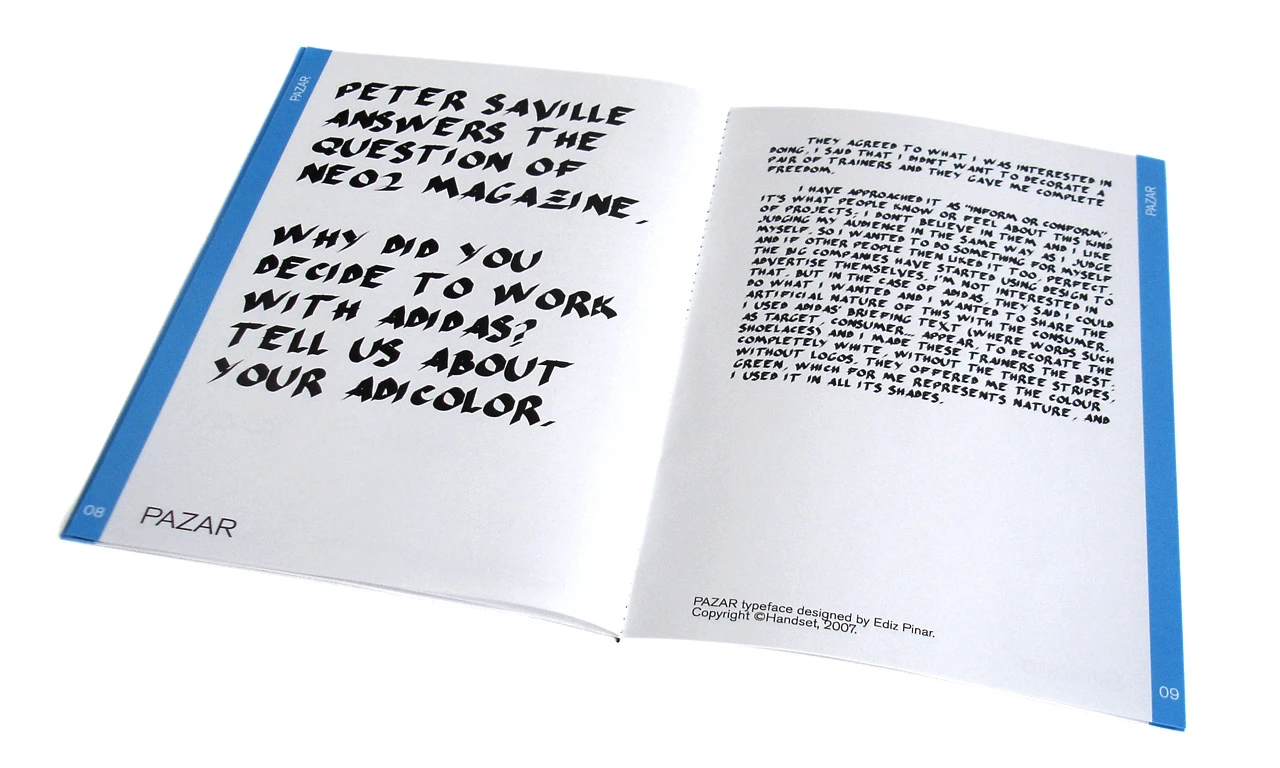 PAZAR
PETER SAVILLE
ANSWERS THE
QUESTION OF
NEO2 MAGAZINE,
WHY DID YOU
DECIDE TO WORK
WITH ADIDAS?
TELL US ABOUT
YOUR ADICOLOR.
08
PAZAR
THEY AGREED TO WHAT I WAS INTERESTED IN
DOING, I SAID THAT I DIDN'T WANT TO DECORATE A
PAIR OF TRAINERS AND THEY GAVE ME COMPLETE
FREEDOM.
I HAVE APPROACHED IT AS "INFORM OR CONFORM",
IT'S WHAT PEOPLE KNOW OR FEEL ABOUT THIS KIND
OF PROJECTS; I DON'T BELIEVE IN THEM AND I LIKE
JUDGING MY AUDIENCE IN THE SAME WAY AS I JUDGE
MYSELF, SO I WANTED TO DO SOMETHING FOR MYSELF
AND IF OTHER PEOPLE THEN LIKED IT TOO, PERFECT.
THE BIG COMPANIES HAVE STARTED USING DESIGN TO
ADVERTISE THEMSELVES. I'M NOT INTERESTED IN
THAT, BUT IN THE CASE OF ADIDAS, THEY SAID I COULD
DO WHAT I WANTED AND I WANTED TO SHARE THE
ARTIFICIAL NATURE OF THIS WITH THE CONSUMER.
I USED ADIDAS' BRIEFING TEXT (WHERE WORDS SUCH
AS TARGET, CONSUMER... APPEAR, TO DECORATE THE
SHOELACES) AND I MADE THESE TRAINERS THE BEST:
COMPLETELY WHITE, WITHOUT THE THREE STRIPES,
WITHOUT LOGOS. THEY OFFERED ME THE COLOUR
GREEN, WHICH FOR ME REPRESENTS NATURE, AND
I USED IT IN ALL ITS SHADES.
PAZAR
PAZAR typeface designed by Ediz Pinar.
Copyright ©Handset, 2007.
09